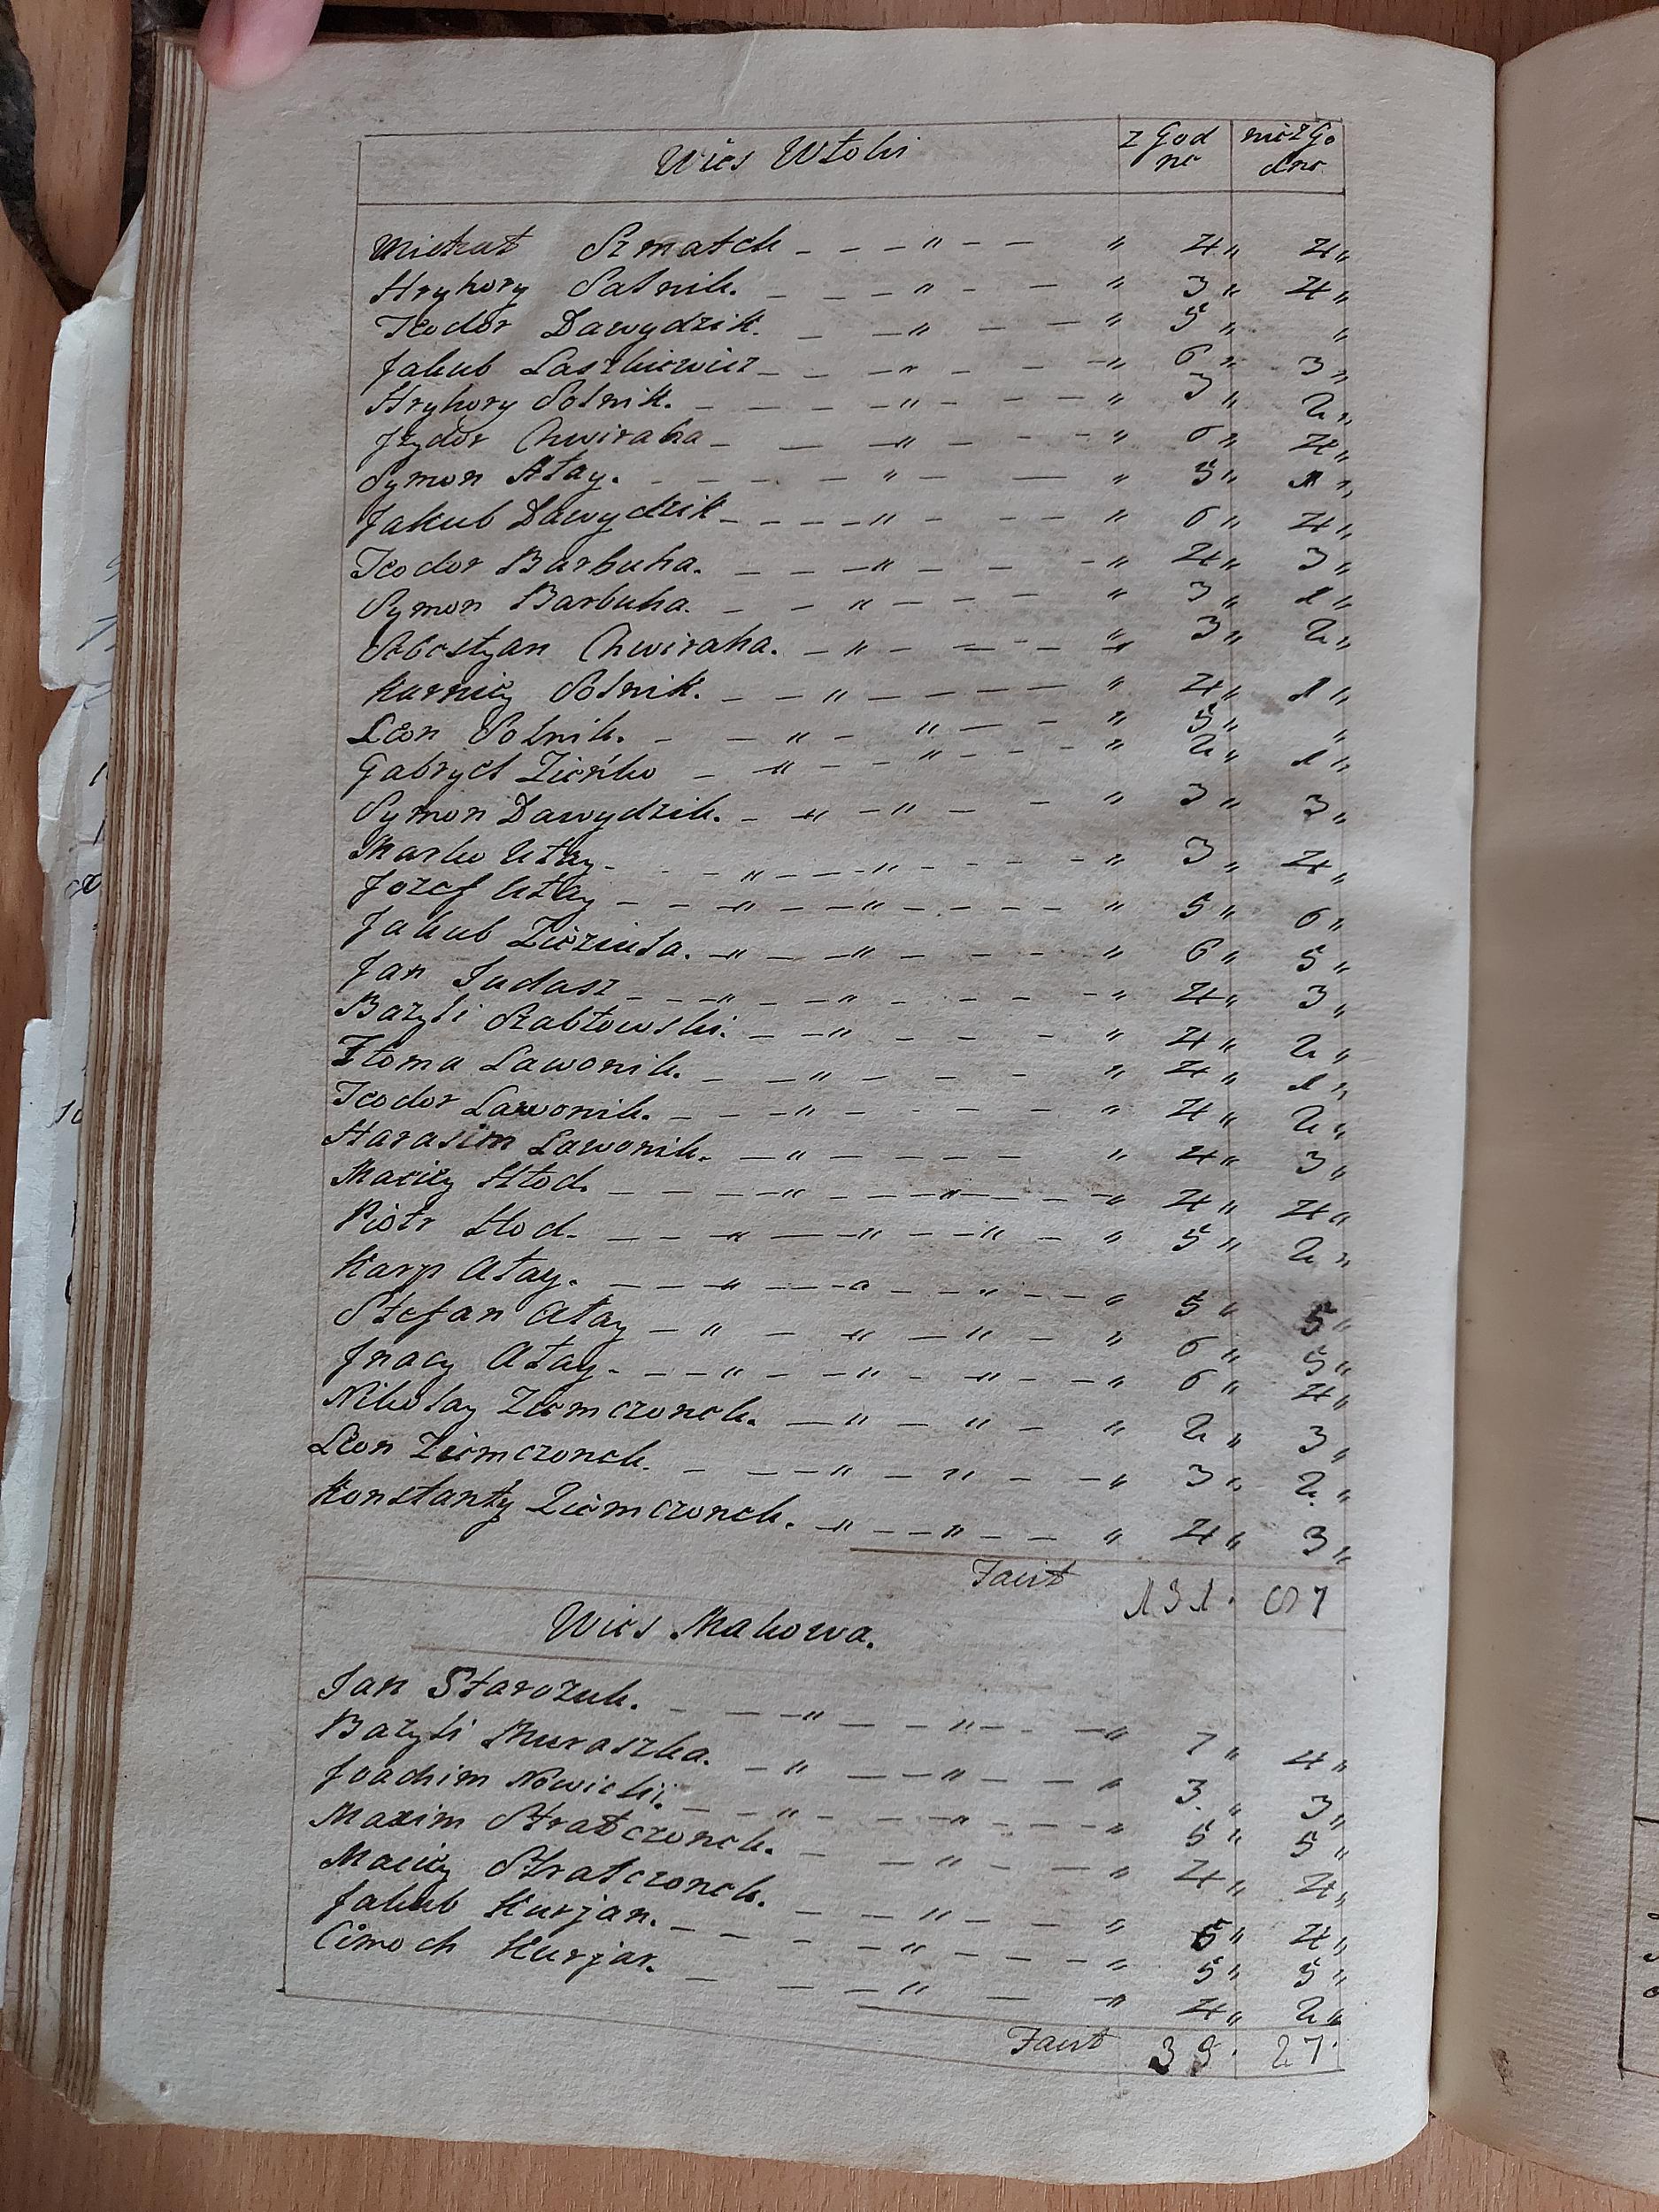 Wieś Wtoki zgod ne niezgo dne
Michał Szmatok " 4 " 4 "
Hryhory Sotnik. " 3 " 4 "
Teodor Dawydzik. " 5 " "
Jakub Laszkiewicz " 6 " 3 "
Hryhory Sotnik. " 3 " 2 "
Jzydor Chwiraha " 6 " 4 "
Symon Ałay. " 5 " 1 "
Jakub Dawydzik " 6 " 4 "
Teodor Barbuha. " 4 " 3 "
Symon Barbuha. " 3 " 1 "
Sebestyan Chwiraha. " 3 " 2 "
Karniey Sotnik. " 4 " 1 "
Leon Sotnik. " 5 " "
Gabryel Zieńko " 2 " 1 "
Symon Dawydzik. " 3 " 3 "
Marko Ałay " 3 " 4 "
Jozef Ałay " 5 " 6 "
Jakub Zieziula. " 6 " 5 "
Jan Judasz " 4 " 3 "
Bazyli Szabłowski. " 4 " 2 "
Tłoma Lawonik. " 4 " 1 "
Teodor Lawonik. " 4 " 2 "
Harasim Lawonik. " 4 " 3 "
Maciey Hłod. " 4 " 4 "
Piotr Hłod. " 5 " 2 "
Karp Ałay. " 5 " 5 "
Stefan Ałay " 6 " 5 "
Jnacy Ałay. " 6 " 4 "
Nikołay Ziemczonek. " 2 " 3 "
Leon Ziemczonek. " 3 " 2 "
Konstanty Ziemczonek. " 4 " 3 "
Faict 131. 87
Wieś Makowa.
Jan Starozuk. " 7 " 4 "
Bazyli Muraszka. " 3. " 3 "
Joachim Nowicki. " 5 " 5 "
Maxim Strałczonek. " 4 " 4 "
Maciey Strałczonek. " 5 " 4 "
Jakub Kurjan. " 5 " 5 "
Cimoch Kurjan. " 4 " 2 "
Faict 39. 27.